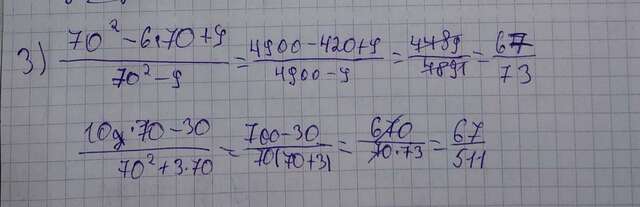 3) (70² - 6·70 + 9)/(70² - 9) = (4900 - 420 + 9)/(4900 - 9) = 4489/4891 = 67/73
(10·70 - 30)/(70² + 3·70) = (700 - 30)/(70(70+3)) = 670/(70·73) = 67/511